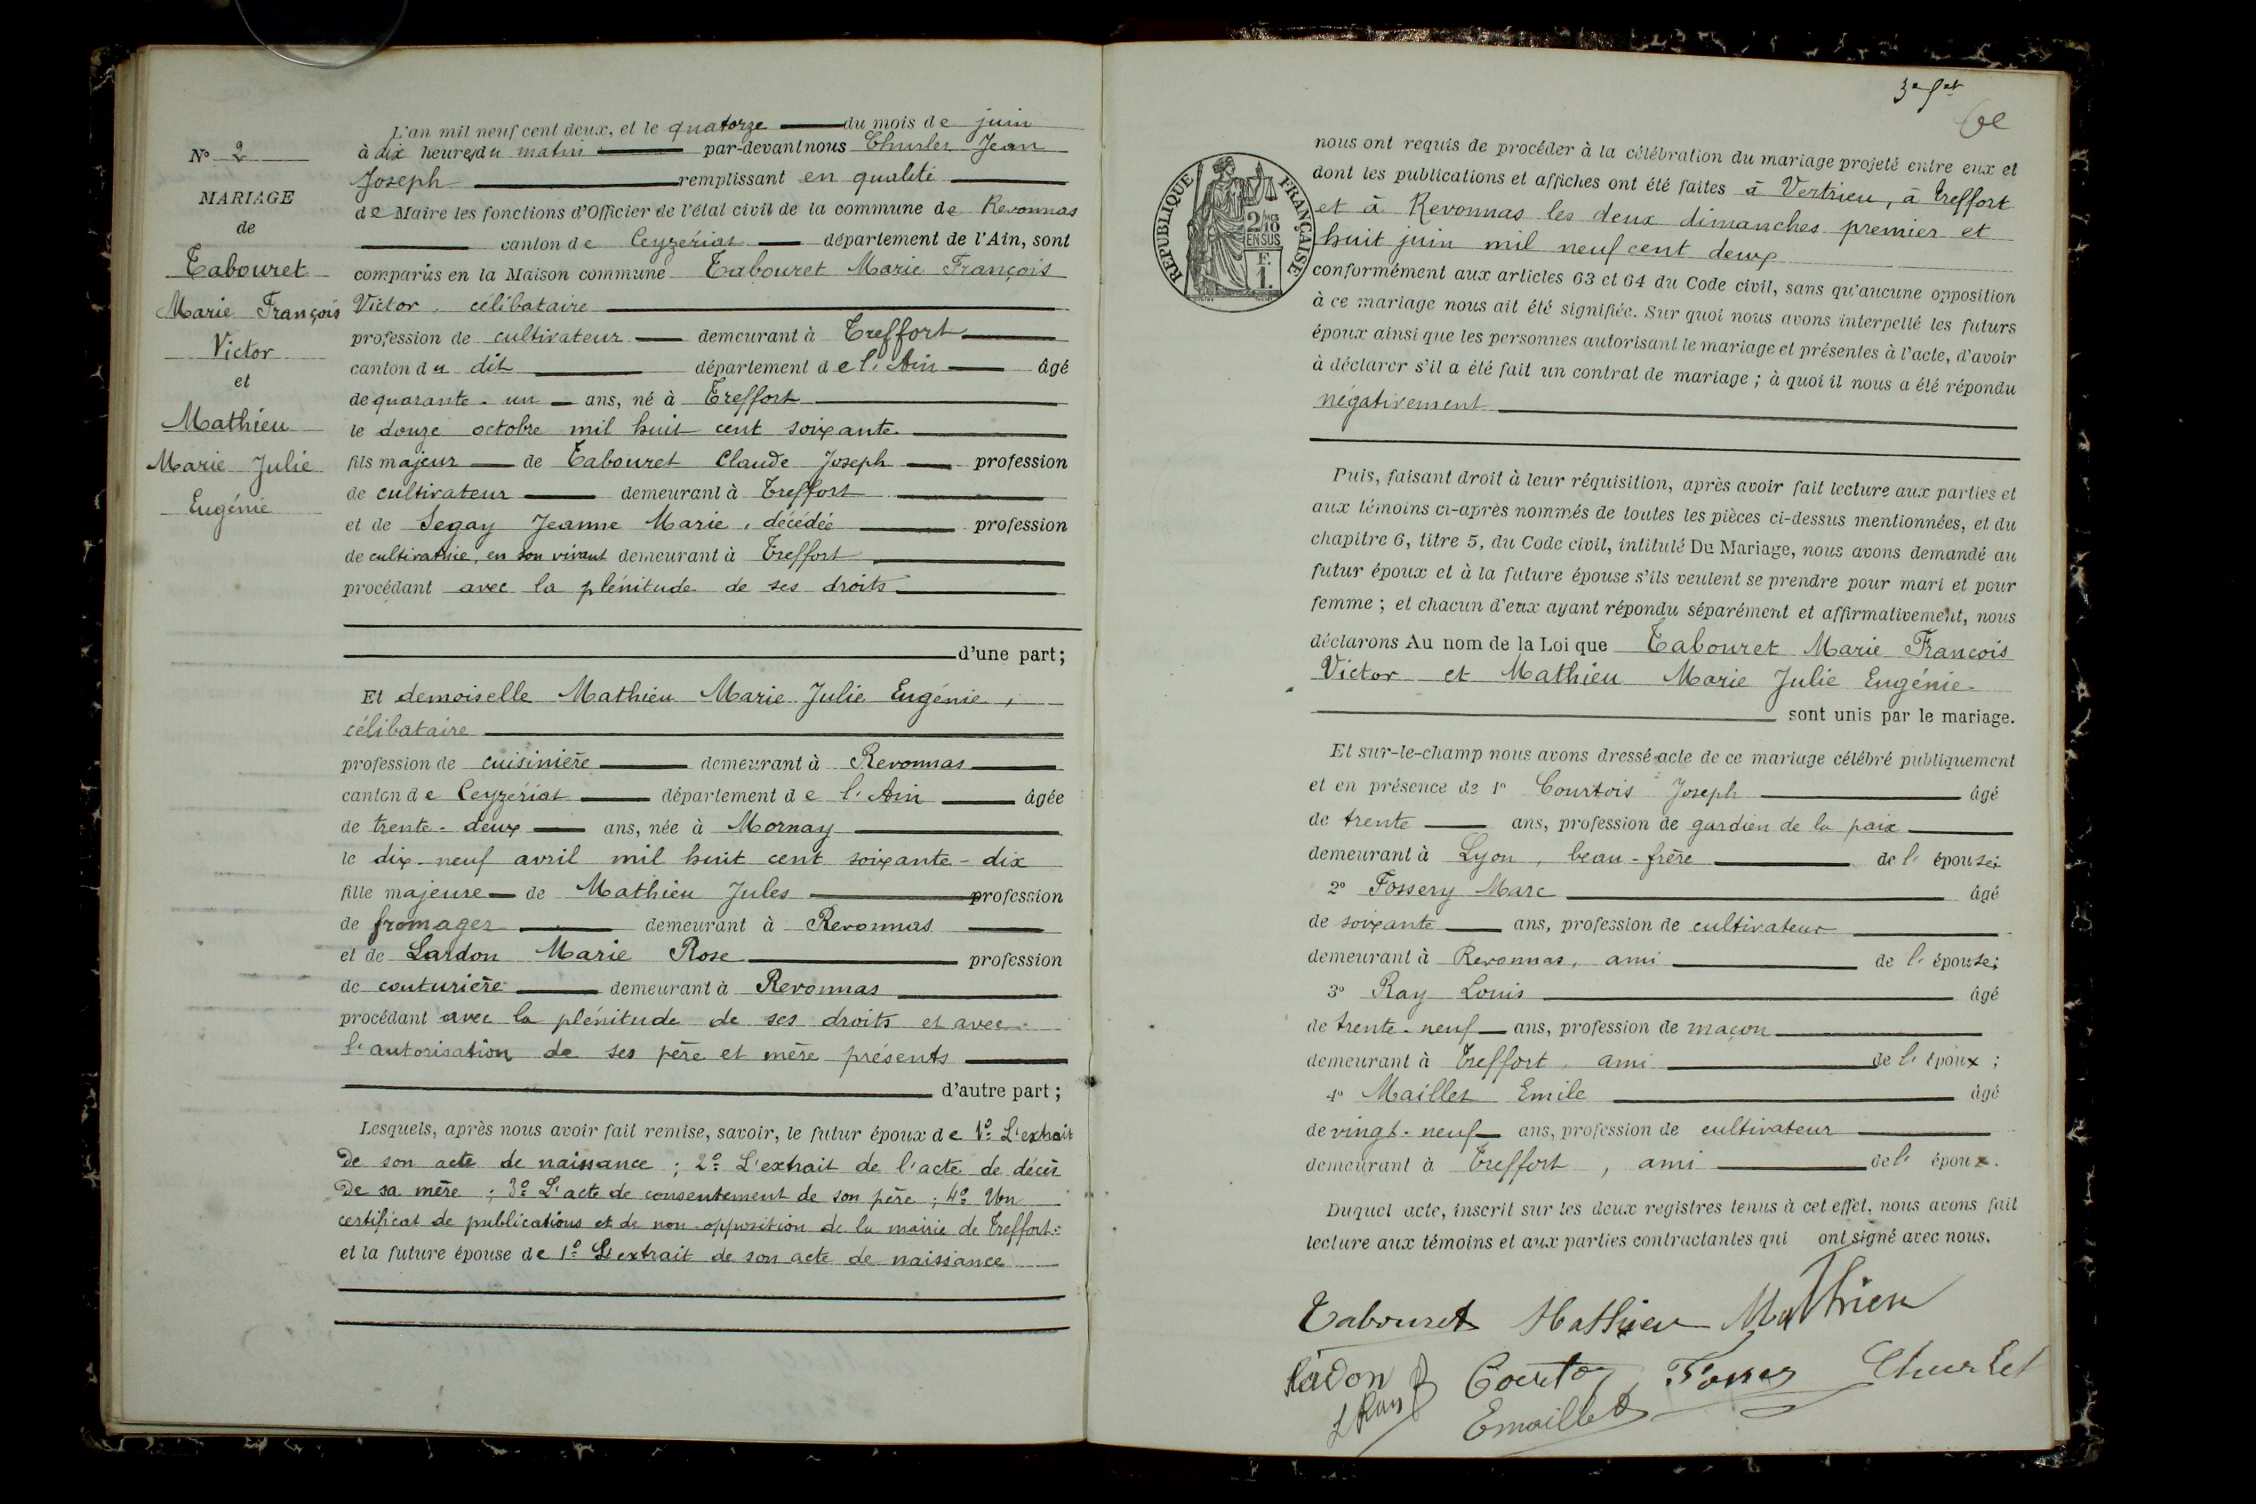 N° 2
MARIAGE
de
Tabouret
Marie François
Victor
et
Mathieu
Marie Julie
Eugénie
L'an mil neuf cent deux, et le quatorze du mois de juin
à dix heures du matin par-devant nous Churlet Jean
Joseph remplissant en qualité
de Maire les fonctions d'Officier de l'état civil de la commune de Revonnas
canton de Ceyzériat département de l'Ain, sont
comparus en la Maison commune Tabouret Marie François
Victor, célibataire
profession de cultivateur demeurant à Treffort
canton du dit département de l'Ain âgé
de quarante-un ans, né à Treffort
le douze octobre mil huit cent soixante
fils majeur de Tabouret Claude Joseph profession
de cultivateur demeurant à Treffort
et de Segay Jeanne Marie, décédée profession
de cultivatrice, en son vivant demeurant à Treffort
procédant avec la plénitude de ses droits
d'une part;
Et demoiselle Mathieu Marie Julie Eugénie,
célibataire
profession de cuisinière demeurant à Revonnas
canton de Ceyzériat département de l'Ain âgée
de trente-deux ans, née à Mornay
le dix-neuf avril mil huit cent soixante-dix
fille majeure de Mathieu Jules profession
de fromager demeurant à Revonnas
et de Lardon Marie Rose profession
de couturière demeurant à Revonnas
procédant avec la plénitude de ses droits et avec
l'autorisation de ses père et mère présents
d'autre part;
Lesquels, après nous avoir fait remise, savoir, le futur époux de 1° L'extrait
de son acte de naissance; 2° L'extrait de l'acte de décès
de sa mère; 3° L'acte de consentement de son père; 4° Un
certificat de publications et de non-opposition de la mairie de Treffort:
et la future épouse de 1° L'extrait de son acte de naissance
3e fet
RÉPUBLIQUE FRANÇAISE
2/10
EN SUS
F.
1.
nous ont requis de procéder à la célébration du mariage projeté entre eux et
dont les publications et affiches ont été faites à Vertrieu, à Treffort
et à Revonnas les deux dimanches premier et
huit juin mil neuf cent deux
conformément aux articles 63 et 64 du Code civil, sans qu'aucune opposition
à ce mariage nous ait été signifiée. Sur quoi nous avons interpellé les futurs
époux ainsi que les personnes autorisant le mariage et présentes à l'acte, d'avoir
à déclarer s'il a été fait un contrat de mariage; à quoi il nous a été répondu
négativement
Puis, faisant droit à leur réquisition, après avoir fait lecture aux parties et
aux témoins ci-après nommés de toutes les pièces ci-dessus mentionnées, et du
chapitre 6, titre 5, du Code civil, intitulé Du Mariage, nous avons demandé au
futur époux et à la future épouse s'ils veulent se prendre pour mari et pour
femme; et chacun d'eux ayant répondu séparément et affirmativement, nous
déclarons Au nom de la Loi que Tabouret Marie François
Victor et Mathieu Marie Julie Eugénie
sont unis par le mariage.
Et sur-le-champ nous avons dressé acte de ce mariage célébré publiquement
et en présence de 1° Courtois Joseph âgé
de trente ans, profession de gardien de la paix
demeurant à Lyon, beau-frère de l'épouse;
2° Fossery Marc âgé
de soixante ans, profession de cultivateur
demeurant à Revonnas, ami de l'épouse;
3° Ray Louis âgé
de trente-neuf ans, profession de maçon
demeurant à Treffort, ami de l'époux;
4° Maillet Emile âgé
de vingt-neuf ans, profession de cultivateur
demeurant à Treffort, ami de l'époux.
Duquel acte, inscrit sur les deux registres tenus à cet effet, nous avons fait
lecture aux témoins et aux parties contractantes qui ont signé avec nous.
Tabouret Mathieu Mathieu
Ladon Courtois Churlet
L Ray E maillet